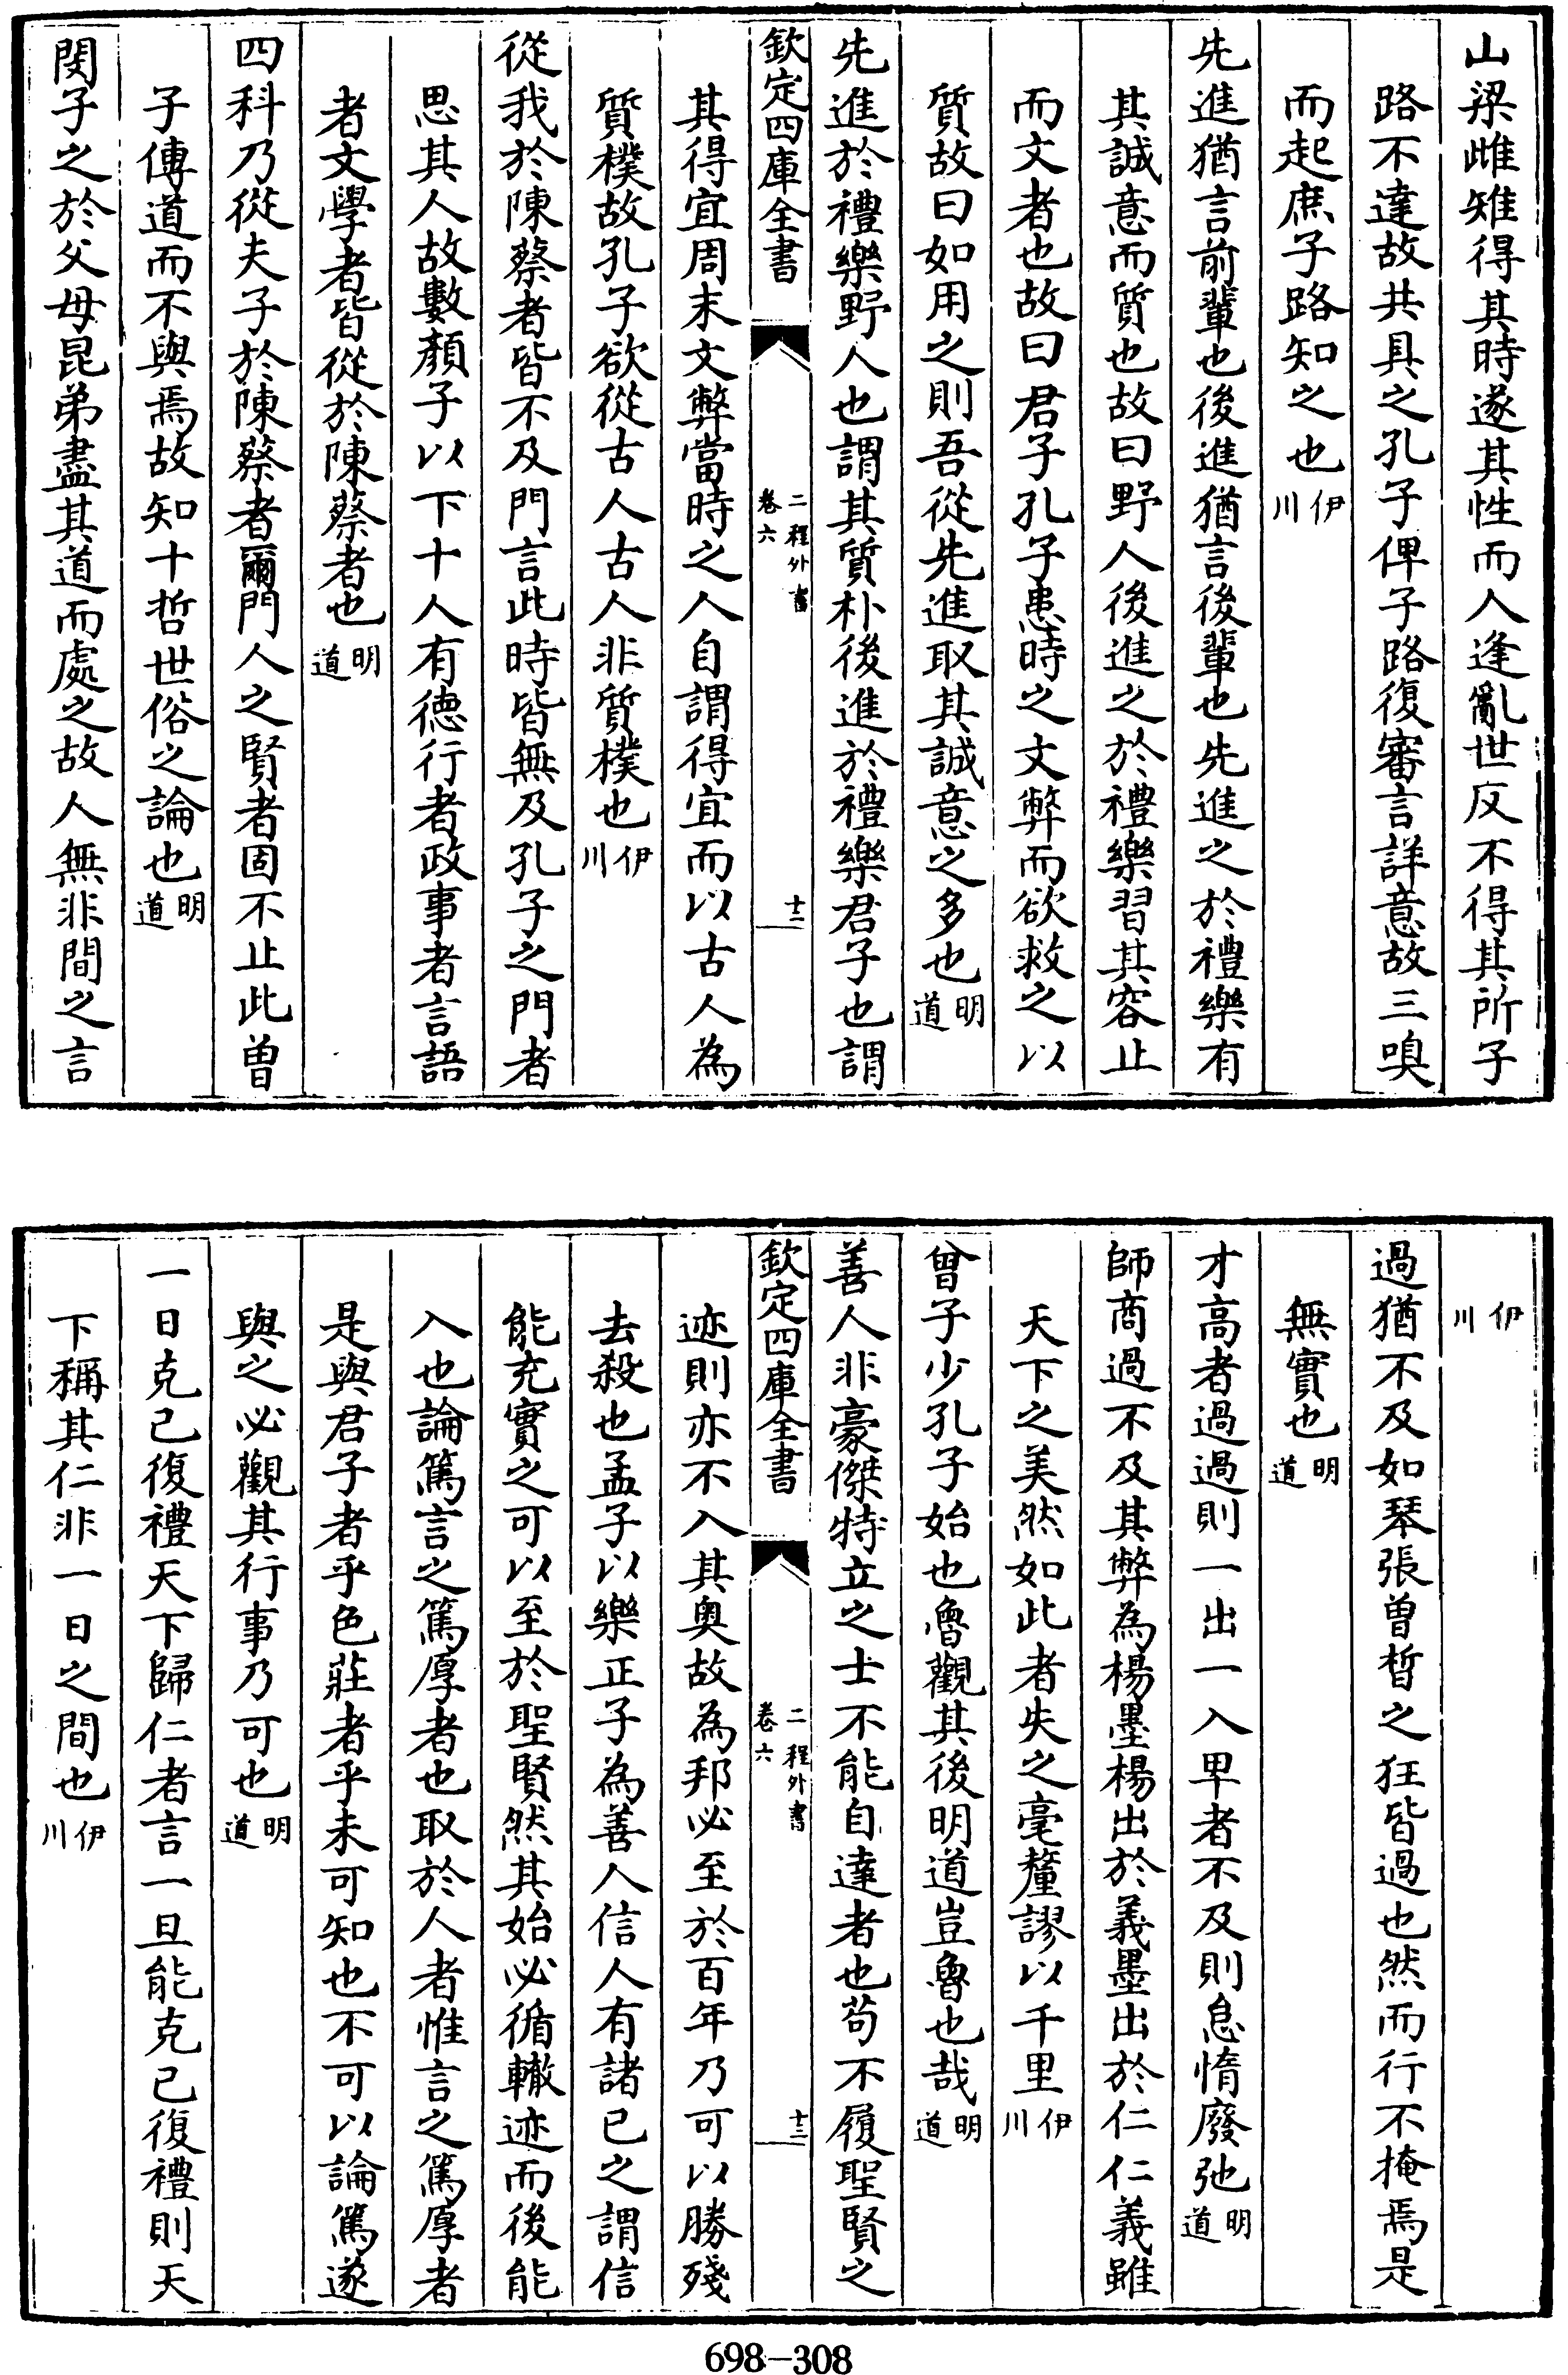 山梁雌雉得其時遂其性而人逢亂世反不得其所子
路不達故共具之孔子俾子路復審言詳意故三嗅
而起庶子路知之也伊川
先進猶言前輩也後進猶言後輩也先進之於禮樂有
其誠意而質也故曰野人後進之於禮樂習其容止
而文者也故曰君子孔子患時之文弊而欲救之以
質故曰如用之則吾從先進取其誠意之多也明道
先進於禮樂野人也謂其質朴後進於禮樂君子也謂
欽定四庫全書 二程外書 卷六 十二
其得宜周末文弊當時之人自謂得宜而以古人為
質樸故孔子欲從古人古人非質樸也伊川
從我於陳蔡者皆不及門言此時皆無及孔子之門者
思其人故數顏子以下十人有德行者政事者言語
者文學者皆從於陳蔡者也明道
四科乃從夫子於陳蔡者爾門人之賢者固不止此曽
子傳道而不與焉故知十哲世俗之論也明道
閔子之於父母昆弟盡其道而處之故人無非間之言
伊川
過猶不及如琴張曽晳之狂皆過也然而行不掩焉是
無實也明道
才高者過過則一出一入卑者不及則怠惰廢弛明道
師商過不及其弊為楊墨楊出於義墨出於仁仁義雖
天下之美然如此者失之毫釐謬以千里伊川
曾子少孔子始也魯觀其後明道豈魯也哉明道
善人非豪傑特立之士不能自達者也苟不履聖賢之
欽定四庫全書 二程外書 卷六 十三
迹則亦不入其奥故為邦必至於百年乃可以勝殘
去殺也孟子以樂正子為善人信人有諸已之謂信
能充實之可以至於聖賢然其始必循轍迹而後能
入也論篤言之篤厚者也取於人者惟言之篤厚者
是與君子者乎色莊者乎未可知也不可以論篤遂
與之必觀其行事乃可也明道
一日克已復禮天下歸仁者言一旦能克已復禮則天
下稱其仁非一日之間也伊川
698-308